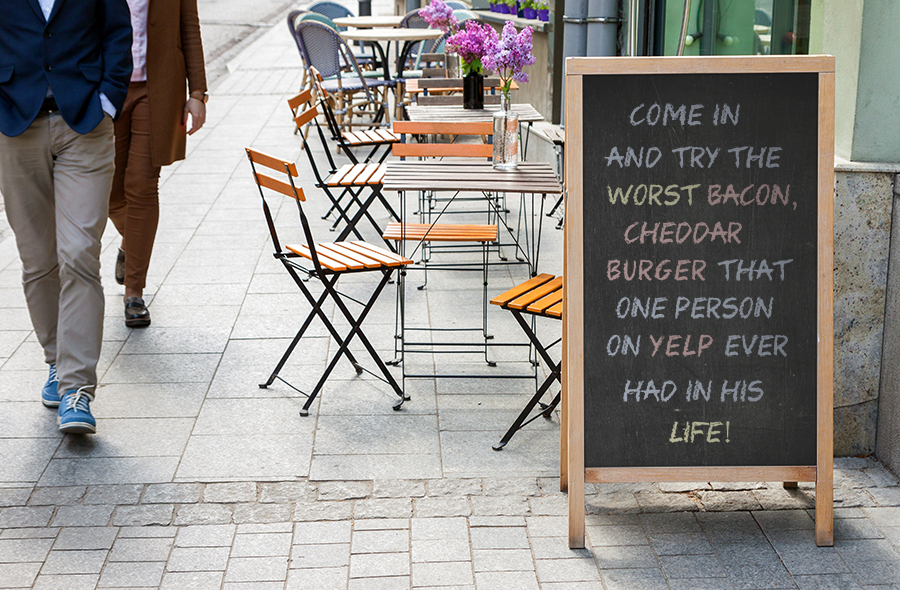 COME IN
AND TRY THE
WORST BACON,
CHEDDAR
BURGER THAT
ONE PERSON
ON YELP EVER
HAD IN HIS
LIFE!